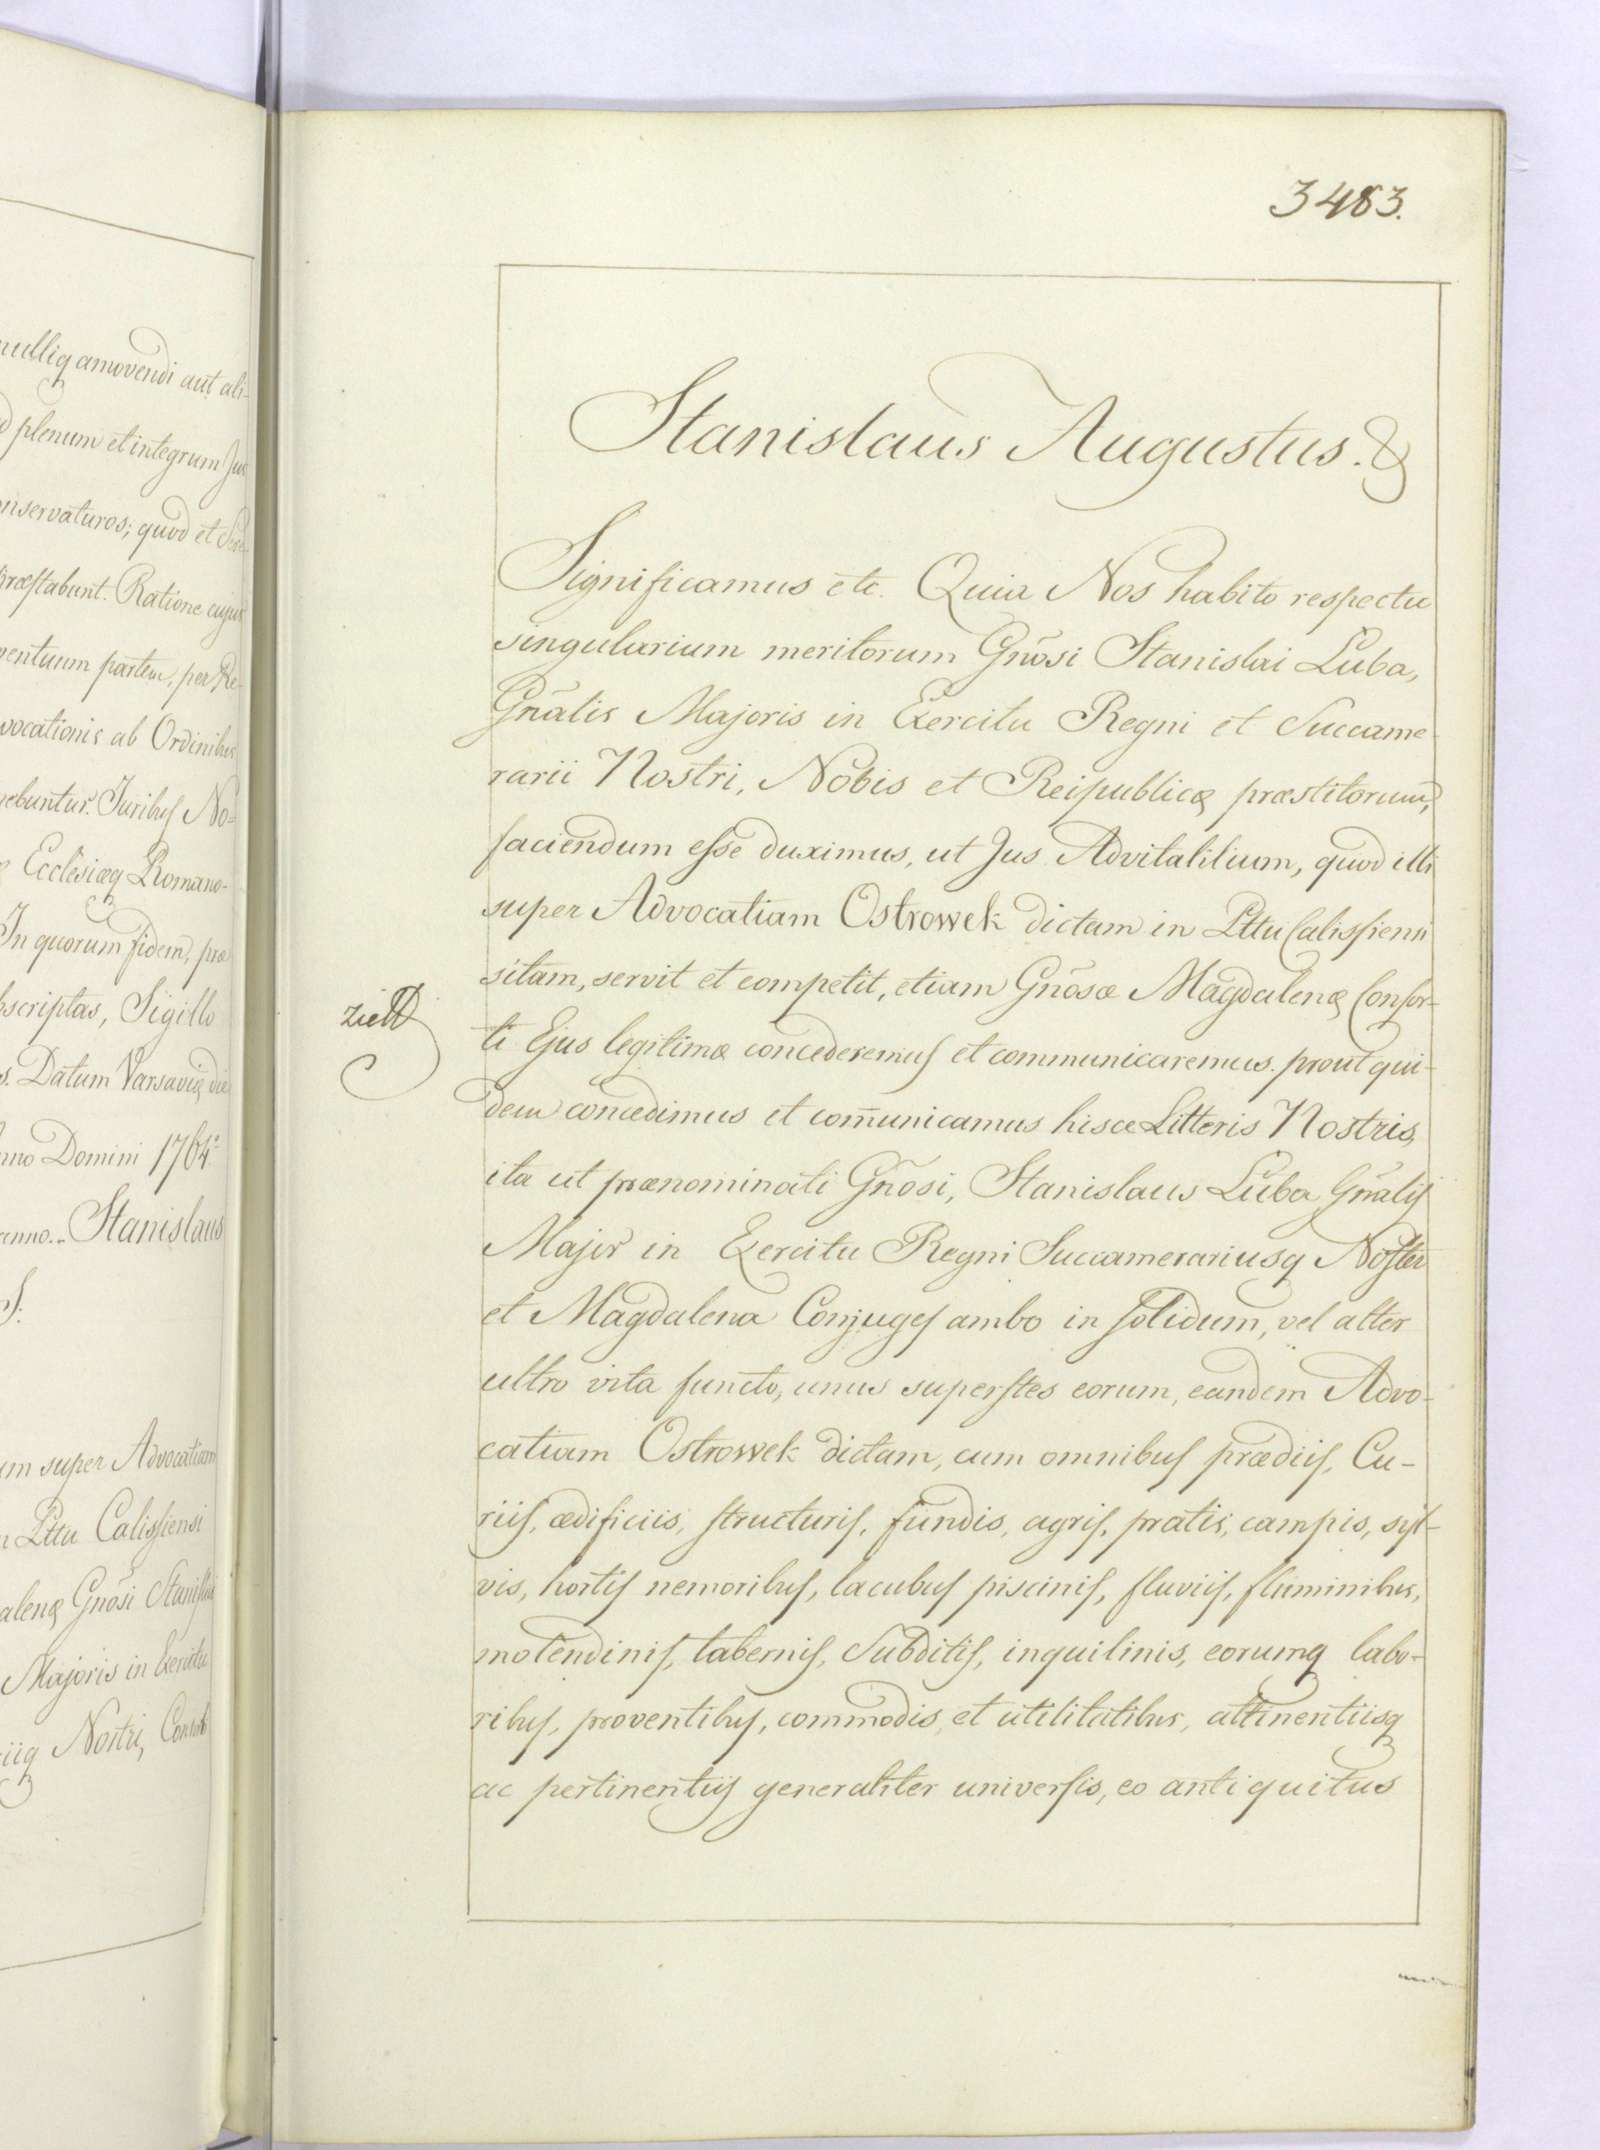 nulliq amovendi aut ali-
plenum et integrum Jus
onservaturos; quod et
præstabunt. Ratione cujus
ventuum partem, per Re-
vocationis ab Ordinibus
gebuntur. Juribus No-
Ecclesiæq Romano-
In quorum fidem, præ
bscriptas, Sigillo
s. Datum Varsaviæ die
nno Domini 1764.
anno. Stanislaus
S:
um super Advocatiam
n Pttu Calissiensi
alenæ Gnõsi Stanislai
Majoris in Exercitu
iiq Nostri, Consorti
3483.
Stanislaus Augustus. &
Significamus etc. Quia Nos habito respectu
singularium meritorum Gnõsi Stanislai Luba,
Gnãlis Majoris in Exercitu Regni et Succame-
rarii Nostri, Nobis et Reipublicæ præstitorum,
faciendum esse duximus, ut Jus Advitalitium, quod illi
super Advocatiam Ostrowek dictam in Pttu Calissiensi
sitam, servit et competit, etiam Gnõsæ Magdalenæ Consor-
ti Ejus legitimæ concederemus et communicaremus. prout qui-
dem concedimus et com̃unicamus hisce Litteris Nostris,
ita ut prænominati Gnõsi, Stanislaus Luba Gnãlis
Major in Exercitu Regni Succamerariusq Noster
et Magdalena Conjuges ambo in solidum, vel alter
ultro vita functo, unus superstes eorum, eandem Advo-
catiam Ostrowek dictam, cum omnibus prædiis, Cu-
riis, ædificiis, structuris, fundis, agris, pratis, campis, syl-
vis, hortis nemoribus, lacubus piscinis, fluviis, fluminibus,
molendinis, tabernis, Subditis, inquilinis, eorumq labo-
ribus, proventibus, commodis, et utilitatibus, attinentiisq
ac pertinentiis generaliter universis, eo antiquitus